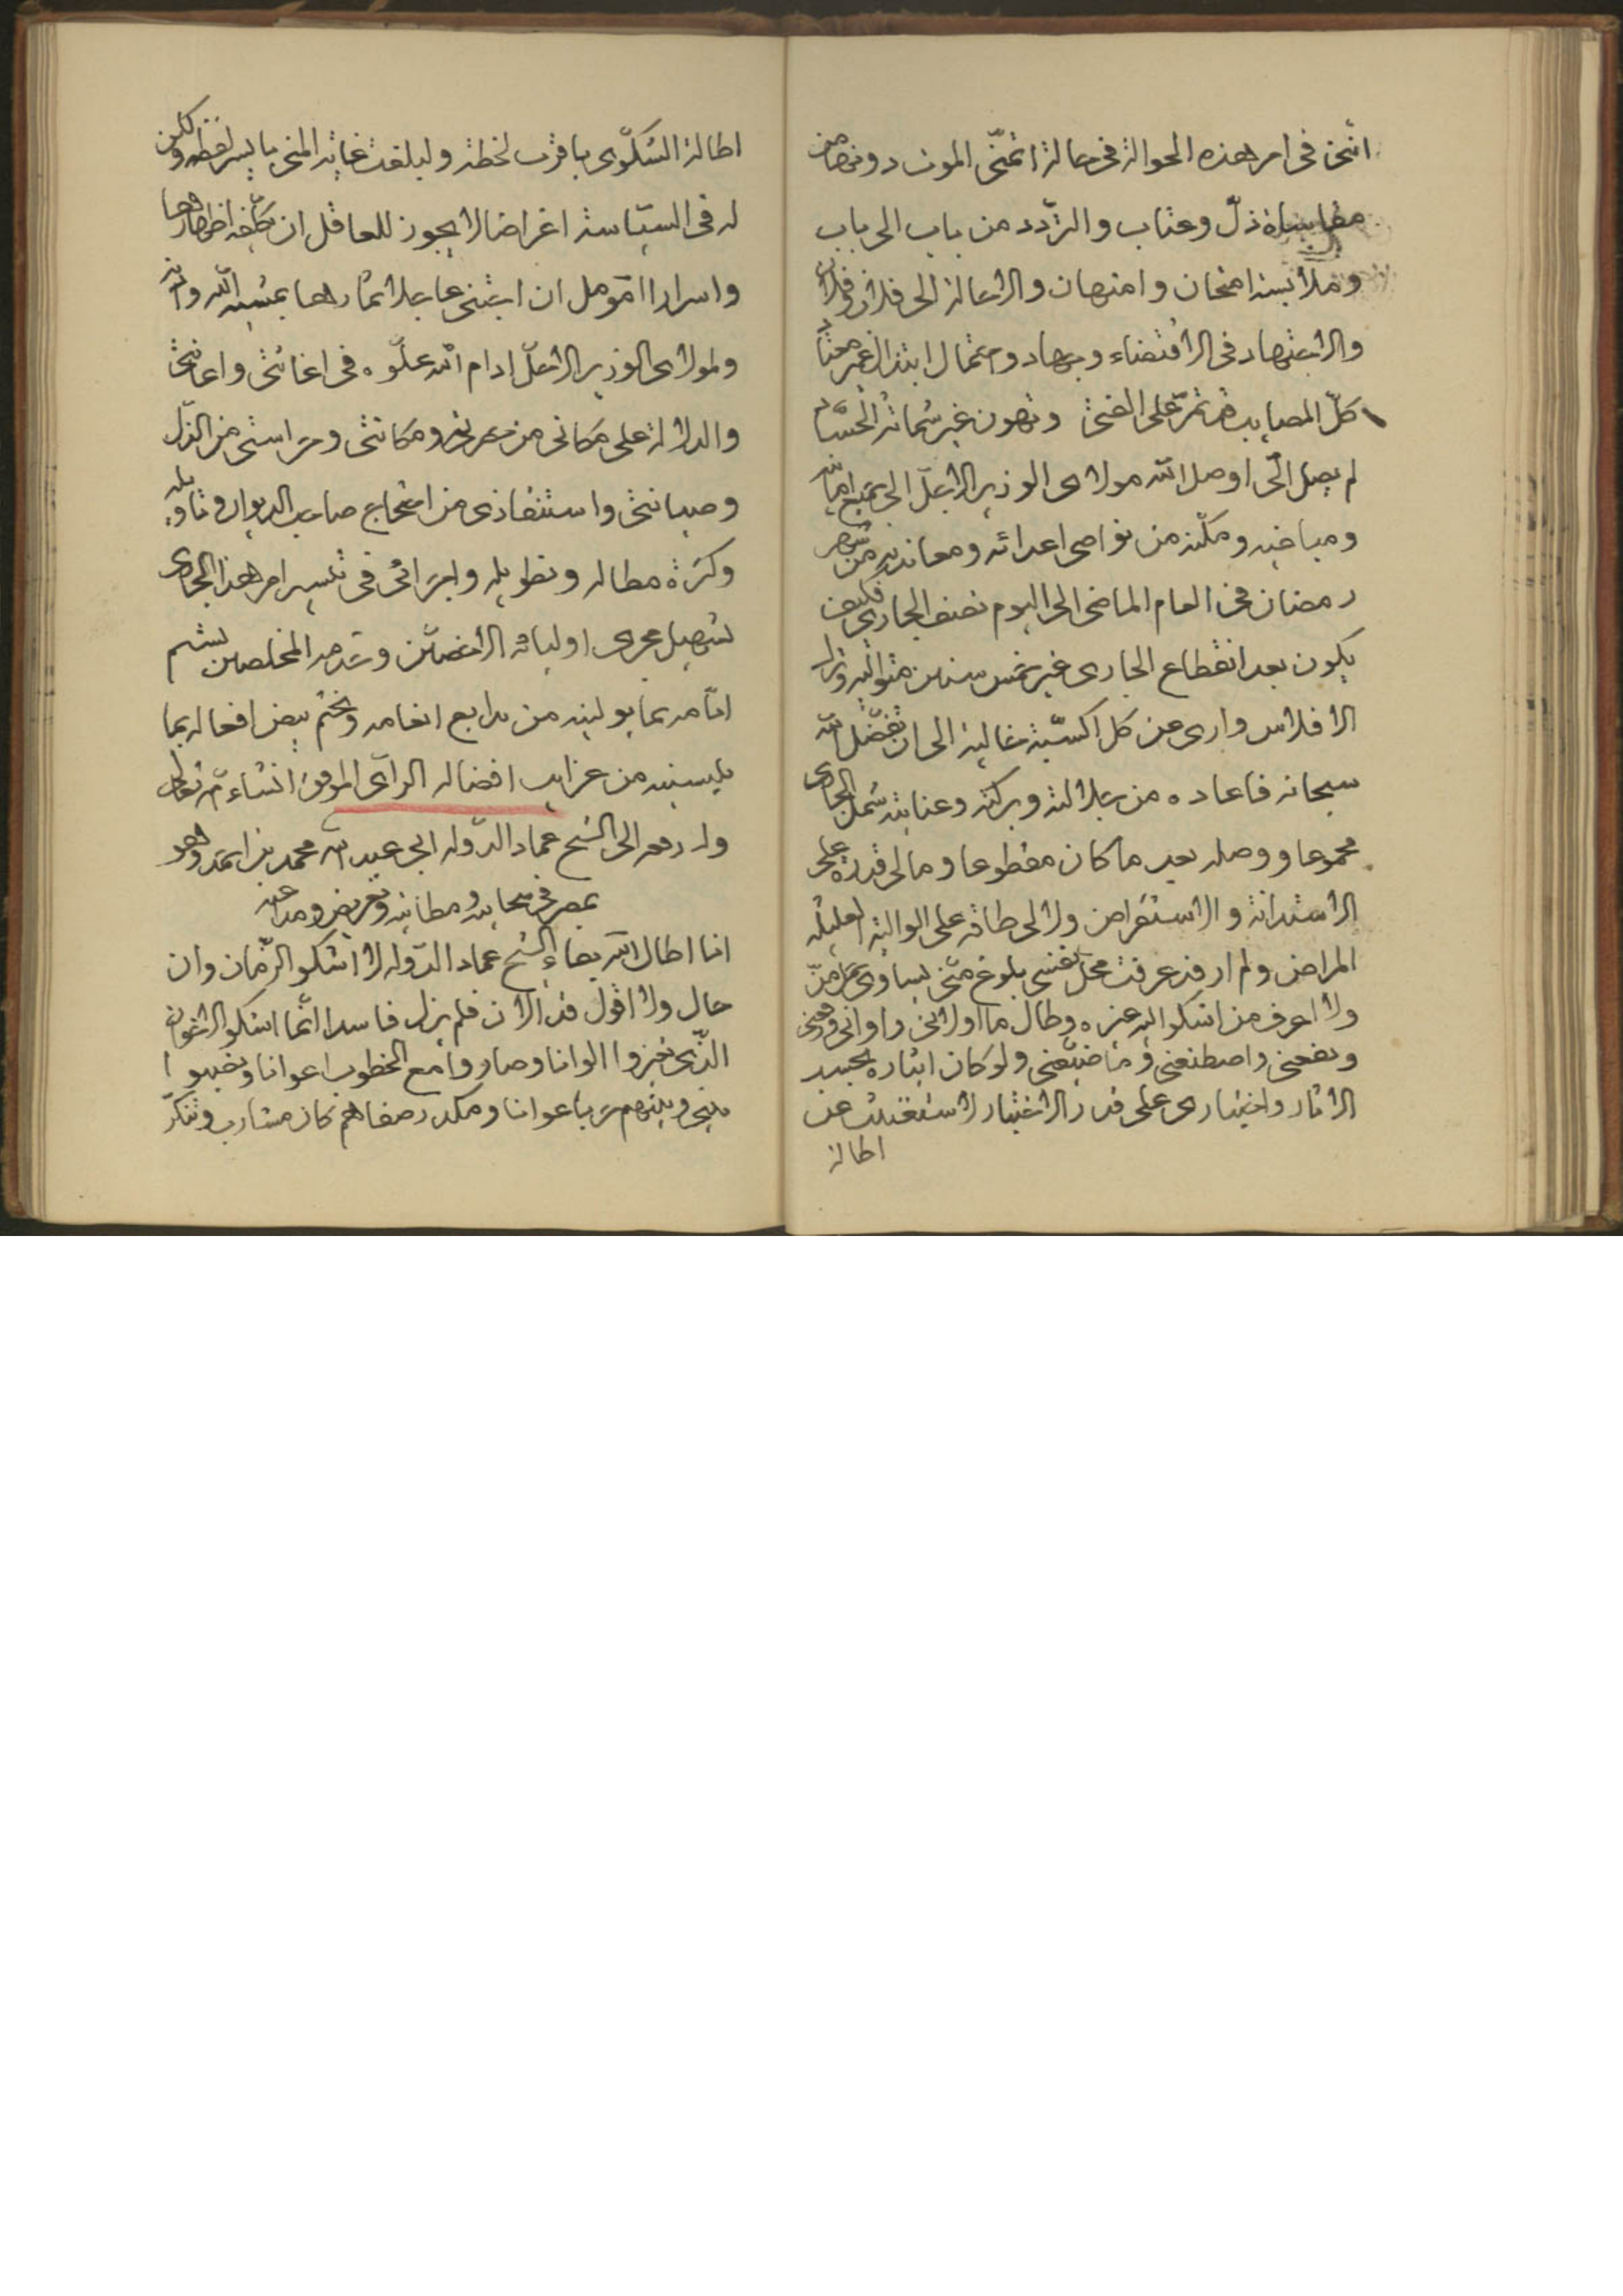 انني في امر هذه الحوالة في حالة اتمنى الموت دونها من
مقاساة ذلّ وعتاب والتردد من باب الى باب
وملابسة امتحان وامتهان والاحالة الى فلان وفلان
والاجتهاد في الاقتضاء وجهاد واحتمال ابتذال غير معتاد
كلّ المصايب قد تمرّ على الفتى وتهون غير شماتة الحسّاد
لم يصل الّى اوصل الله مولاى الوزير الاجلّ الى جميع امانيه
ومباغيه ومكّنه من نواصى اعدائه ومعانديه من شهر
رمضان في العام الماضى الى اليوم نصف الجارى فكيف
يكون بعد انقطاع الجارى غير خمس سنين متواليه ونزل
الافلاس وارى من كل اكسبته غالية الى ان تفضّل الله
سبحانه فاعاده من جلالته وبركته وعنايته شمل الجارى
مجموعا ووصله بعد ما كان مقطوعا ومالى قدرة على
الاستدانة والاستقراض ولا لى طاقه على الوالية
المراض ولم ار قد عرفت محل نفسى بلوغ منّى يساوى حمل منّ
ولا اعرف من اشكو اليه غيره وطال ما اولانى واوانى
ونفعنى واصطنعنى وما ضيّعنى ولو كان ايثاره بحسب
الاثار واختيارى على قدر الاختيار لاستغنيت عن
اطالة
اطالة الشكوى باقرب لحظة ولبلغت غاية المنى بايسر لفظة ولكن
له في السياسة اغراضا لا يجوز للعاقل ان يكلّفه اظهارها
واسرارا اؤمل ان اجتنى عاجلا ثمارها بمشية الله واذنه
ولمولاى الوزير الاجلّ ادام الله علّوه في اغاثتى واعانتى
والدلالة على مكانى من ومكانتى وحراستى من الذل
وصيانتى واستنقاذى من احتجاج صاحب الديوان وتاويله
وكثرة مطاله وتطويله واجرائى في تيسير امر هذا الجارى
تسهيل مجرى اوليائه الاخصّين وخدمه المخلصين ليتم
ايّامه بما يوليه من بدايع انعامه ويختم بيض افعاله بما
يليسنيه من غرايب افضاله الراى الموفق انشاء الله تعالى
وله رقعه الى الشيخ عماد الدوله ابى عبد الله محمد بن احمد وهو
بمصر في معاتبه ومطايبه وتعريض ومداعبه
انا اطال الله بقاء الشيخ عماد الدوله لا اشكو الزمان وان
حال ولا اقول قد الان فلم يزل فاسدا انّما اشكو الاخوان
الذى تغيروا الوانا وصاروا مع الخطوب اعوانا
بينى وبينهم حربا عوانا ومكدر صفاهم كان مشارب وتنكّر